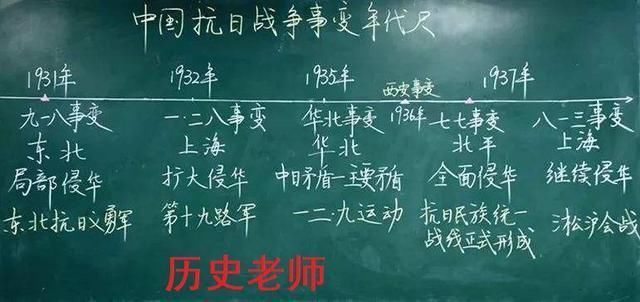 中国抗日战争事变年代尺
1931年 1932年 1935年 西安事变 1937年
1936年
九一八事变 一·二八事变 华北事变 七七事变 八一三事变
东北 上海 华北 北平 上海
局部侵华 扩大侵华 中日矛盾—主要矛盾 全面侵华 继续侵华
东北抗日义勇军 第十九路军 一二·九运动 抗日民族统一 淞沪会战
战线正式形成
历史老师